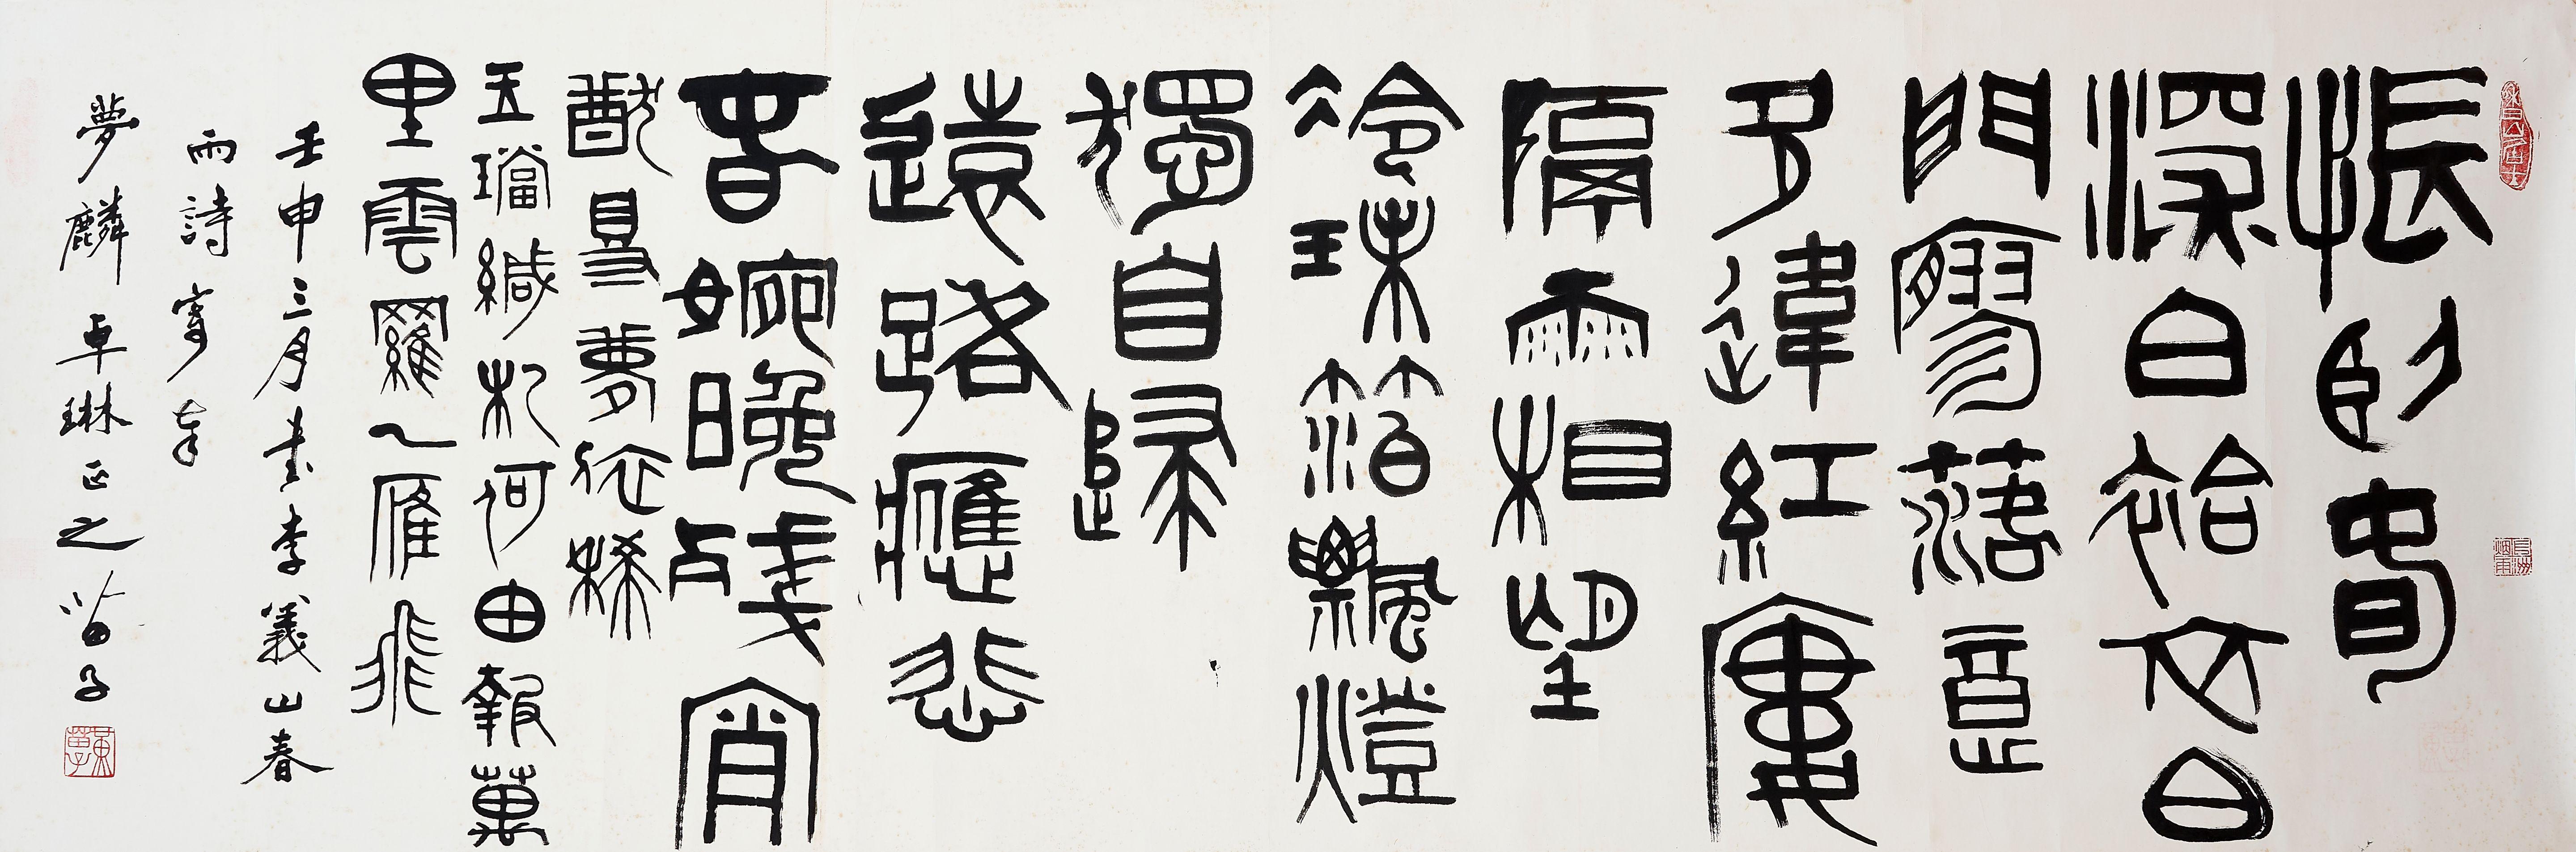 悵臥春
深白袷衣白
門廖落意
多違紅廔
隔雨相望
冷珠箔飄燈
獨自歸
遠路應悲
春婉晚殘宵
猷㝵夢依稀
玉璫緘札何由報萬
里雲羅一雁飛
壬申三月書李義山春
雨詩寄奉
夢麟 卓琳正之 苗子